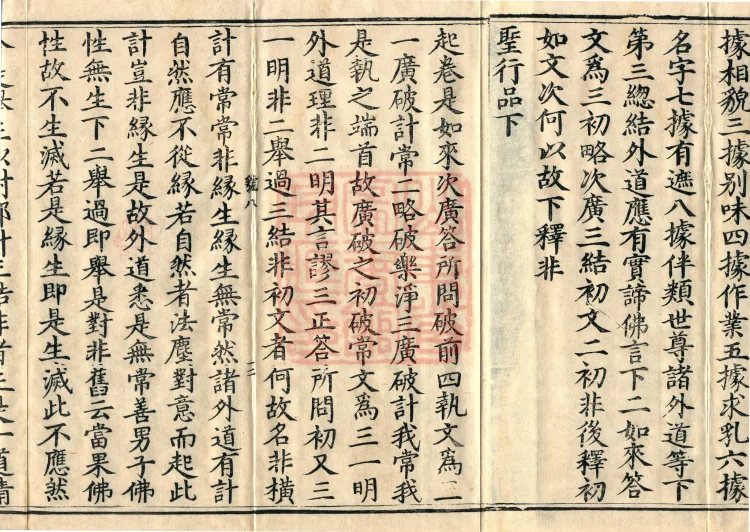 據相貌三據别味四據作業五據求乳六據
名字七據有遮八據伴類世尊諸外道等下
第三總結外道應有實諦佛言下二如來答
文為三初略次廣三結初文二初非後釋初
如文次何以故下釋非
聖行品下
起卷是如來次廣答所問破前四執文為二
一廣破計常二略破樂淨三廣破計我常我
是執之端首故廣破之初破常文為三一明
外道理非二明其言謬三正答所問初又三
一明非二舉過三結非初文者何故名非橫
號八
二
計有常常非緣生緣生無常然諸外道有計
自然應不從緣若自然者法塵對意而起此
計豈非緣生是故外道悉是無常善男子佛
性無生下二舉過即舉是對非舊云當果佛
性故不生滅若是緣生即是生滅此不應然